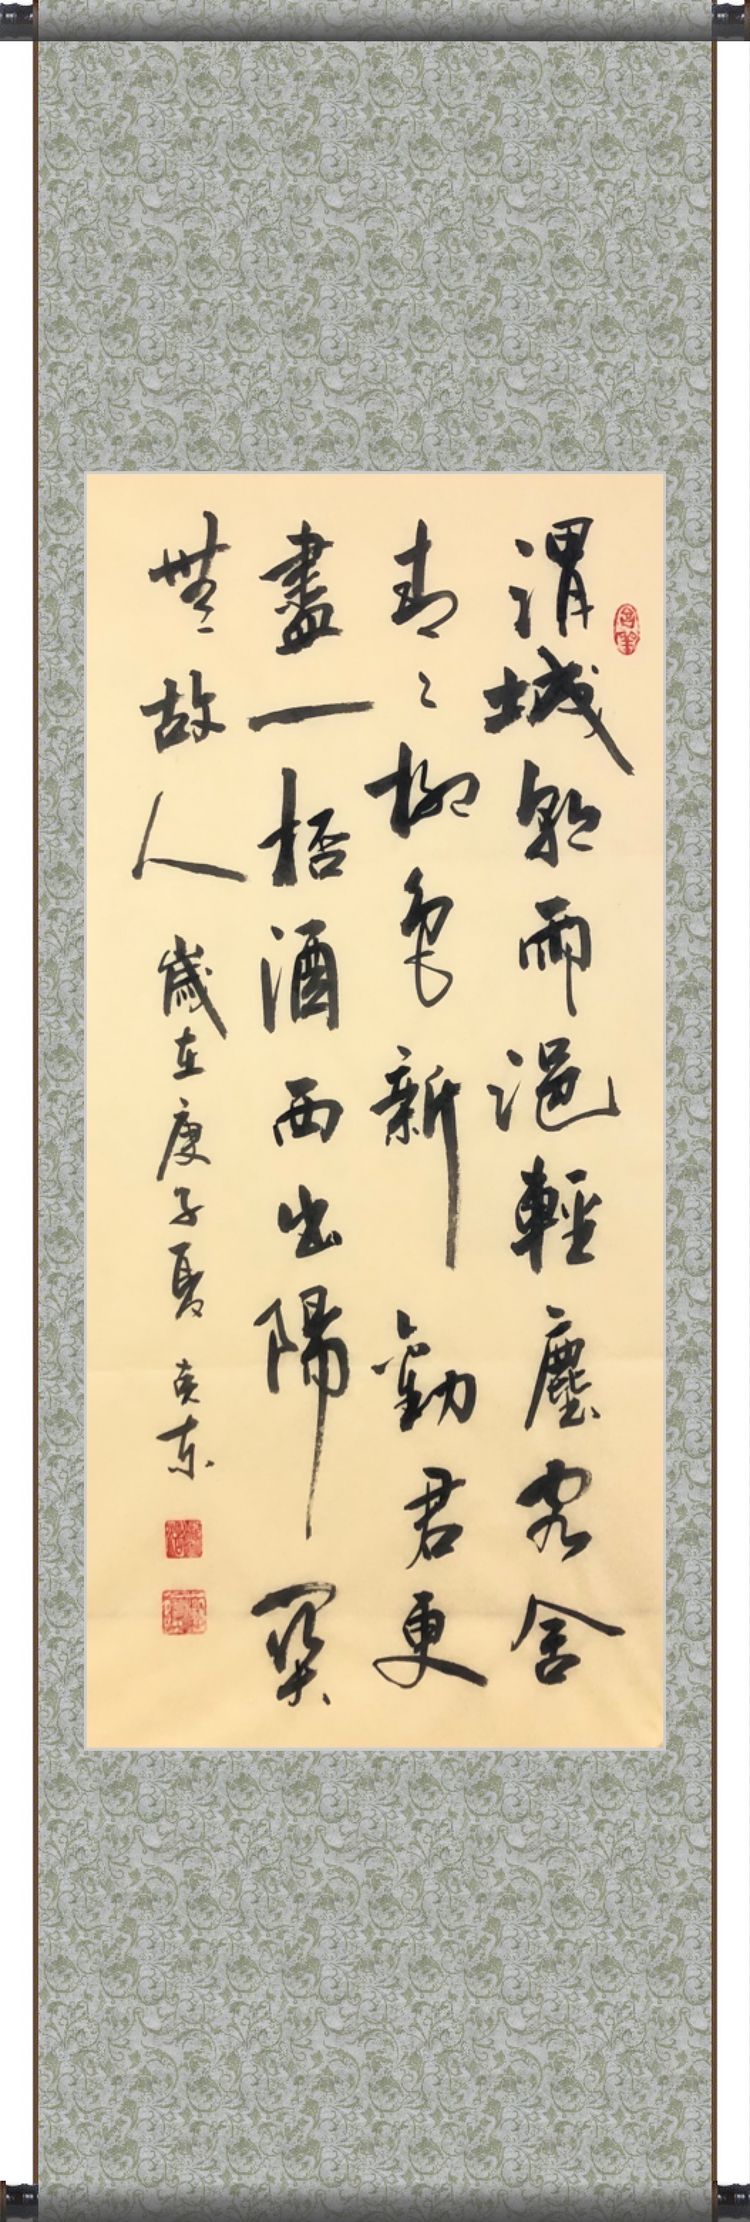 渭城朝雨浥輕塵客舍
青々柳色新勸君更
盡一桮酒西出陽關
無故人 歲在庚子夏 东